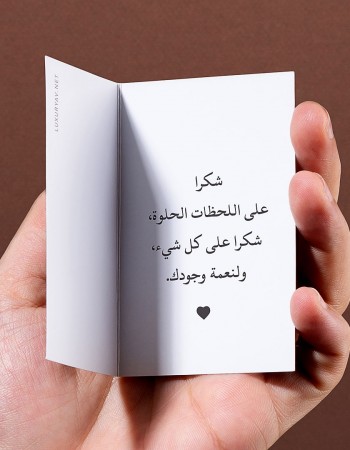 شكرا
على اللحظات الحلوة،
شكرا على كل شيء،
ولنعمة وجودك.